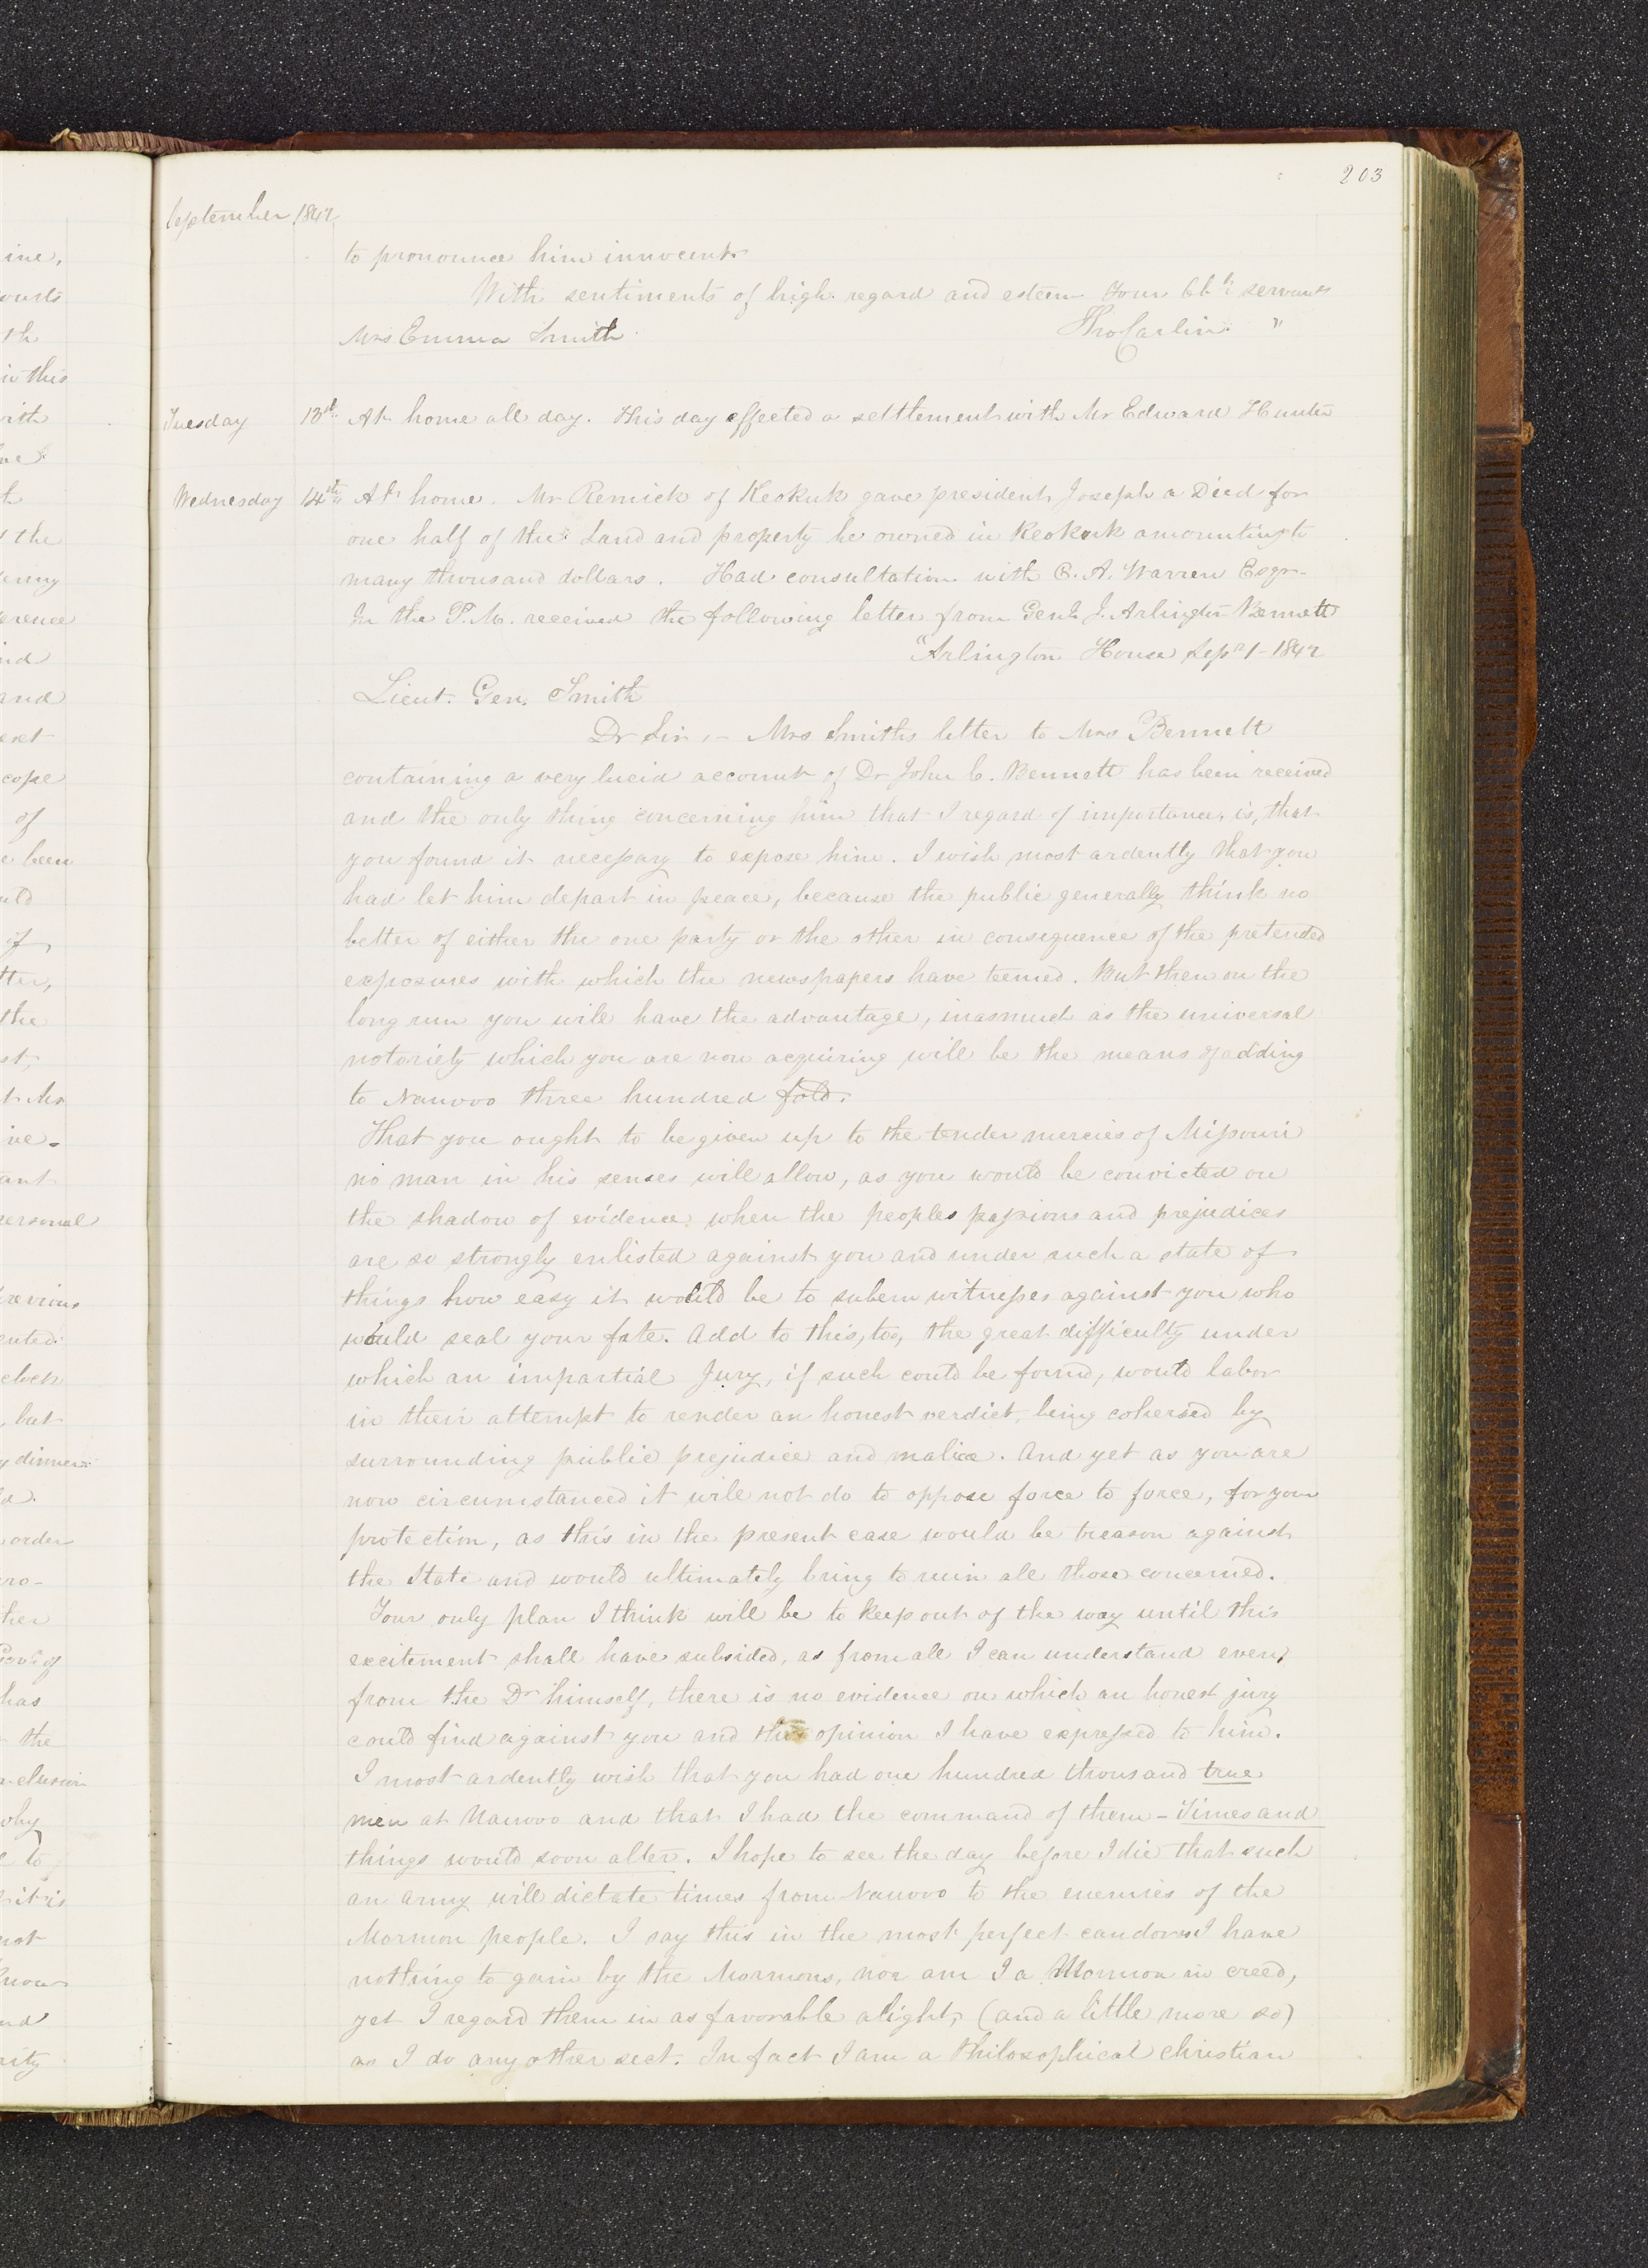 203
September 1842
to pronounce him innocent
With sentiments of high regard and esteem Your Obt servant
Mrs Emma Smith. Tho Carlin. "
Tuesday 13th At home all day. This day effected a settlement with Mr Edward Hunter
Wednesday 14th At home. Mr Remick of Keokuk gave president Joseph a Deed for
one half of the Land and property he owned in Keokuk amounting to
many thousand dollars. Had consultation with C. A. Warren Esqr.
In the P.M. received the following letter from Genl J. Arlington Bennett
"Arlington House Sepr 1– 1842
Lieut. Gen. Smith
Dr Sir,– Mrs Smiths letter to Mrs Bennett
containing a very lucid account of Dr John C. Bennett has been received
and the only thing concerning him that I regard of importance, is, that
you found it necessary to expose him. I wish most ardently that you
had let him depart in peace, because the public generally think no
better of either the one party or the other in consequence of the pretended
exposures with which the newspapers have teemed. But then on the
long run you will have the advantage, inasmuch as the universal
notoriety which you are now acquiring will be the means of adding
to Nauvoo three hundred fold.
That you ought to be given up to the tender mercies of Missouri
no man in his senses will allow, as you would be convicted on
the shadow of evidence when the peoples passions and prejudices
are so strongly enlisted against you and under such a state of
things how easy it would be to suborn witnesses against you who
would seal your fate. Add to this, too, the great difficulty under
which an impartial Jury, if such could be found, would labor
in their attempt to render an honest verdict, being cohersed by
surrounding public prejudice and malice. And yet as you are
now circumstanced it will not do to oppose force to force, for your
protection, as this in the present case would be treason against
the State and would ultimately bring to ruin all those concerned.
Your only plan I think will be to keep out of the way until this
excitement shall have subsided, as from all I can understand even,
from the Dr himself, there is no evidence on which an honest jury
could find against you and this opinion I have expressed to him.
I most ardently wish that you had one hundred thousand true
men at Nauvoo and that I had the command of them – Times and
things would soon alter. I hope to see the day before I die that such
an army will dictate times from Nauvoo to the enemies of the
Mormon people. I say this in the most perfect candor as I have
nothing to gain by the Mormons, nor am I a Mormon in creed,
yet I regard them in as favorable a light, (and a little more so)
as I do any other sect. In fact I am a Philosophical Christian